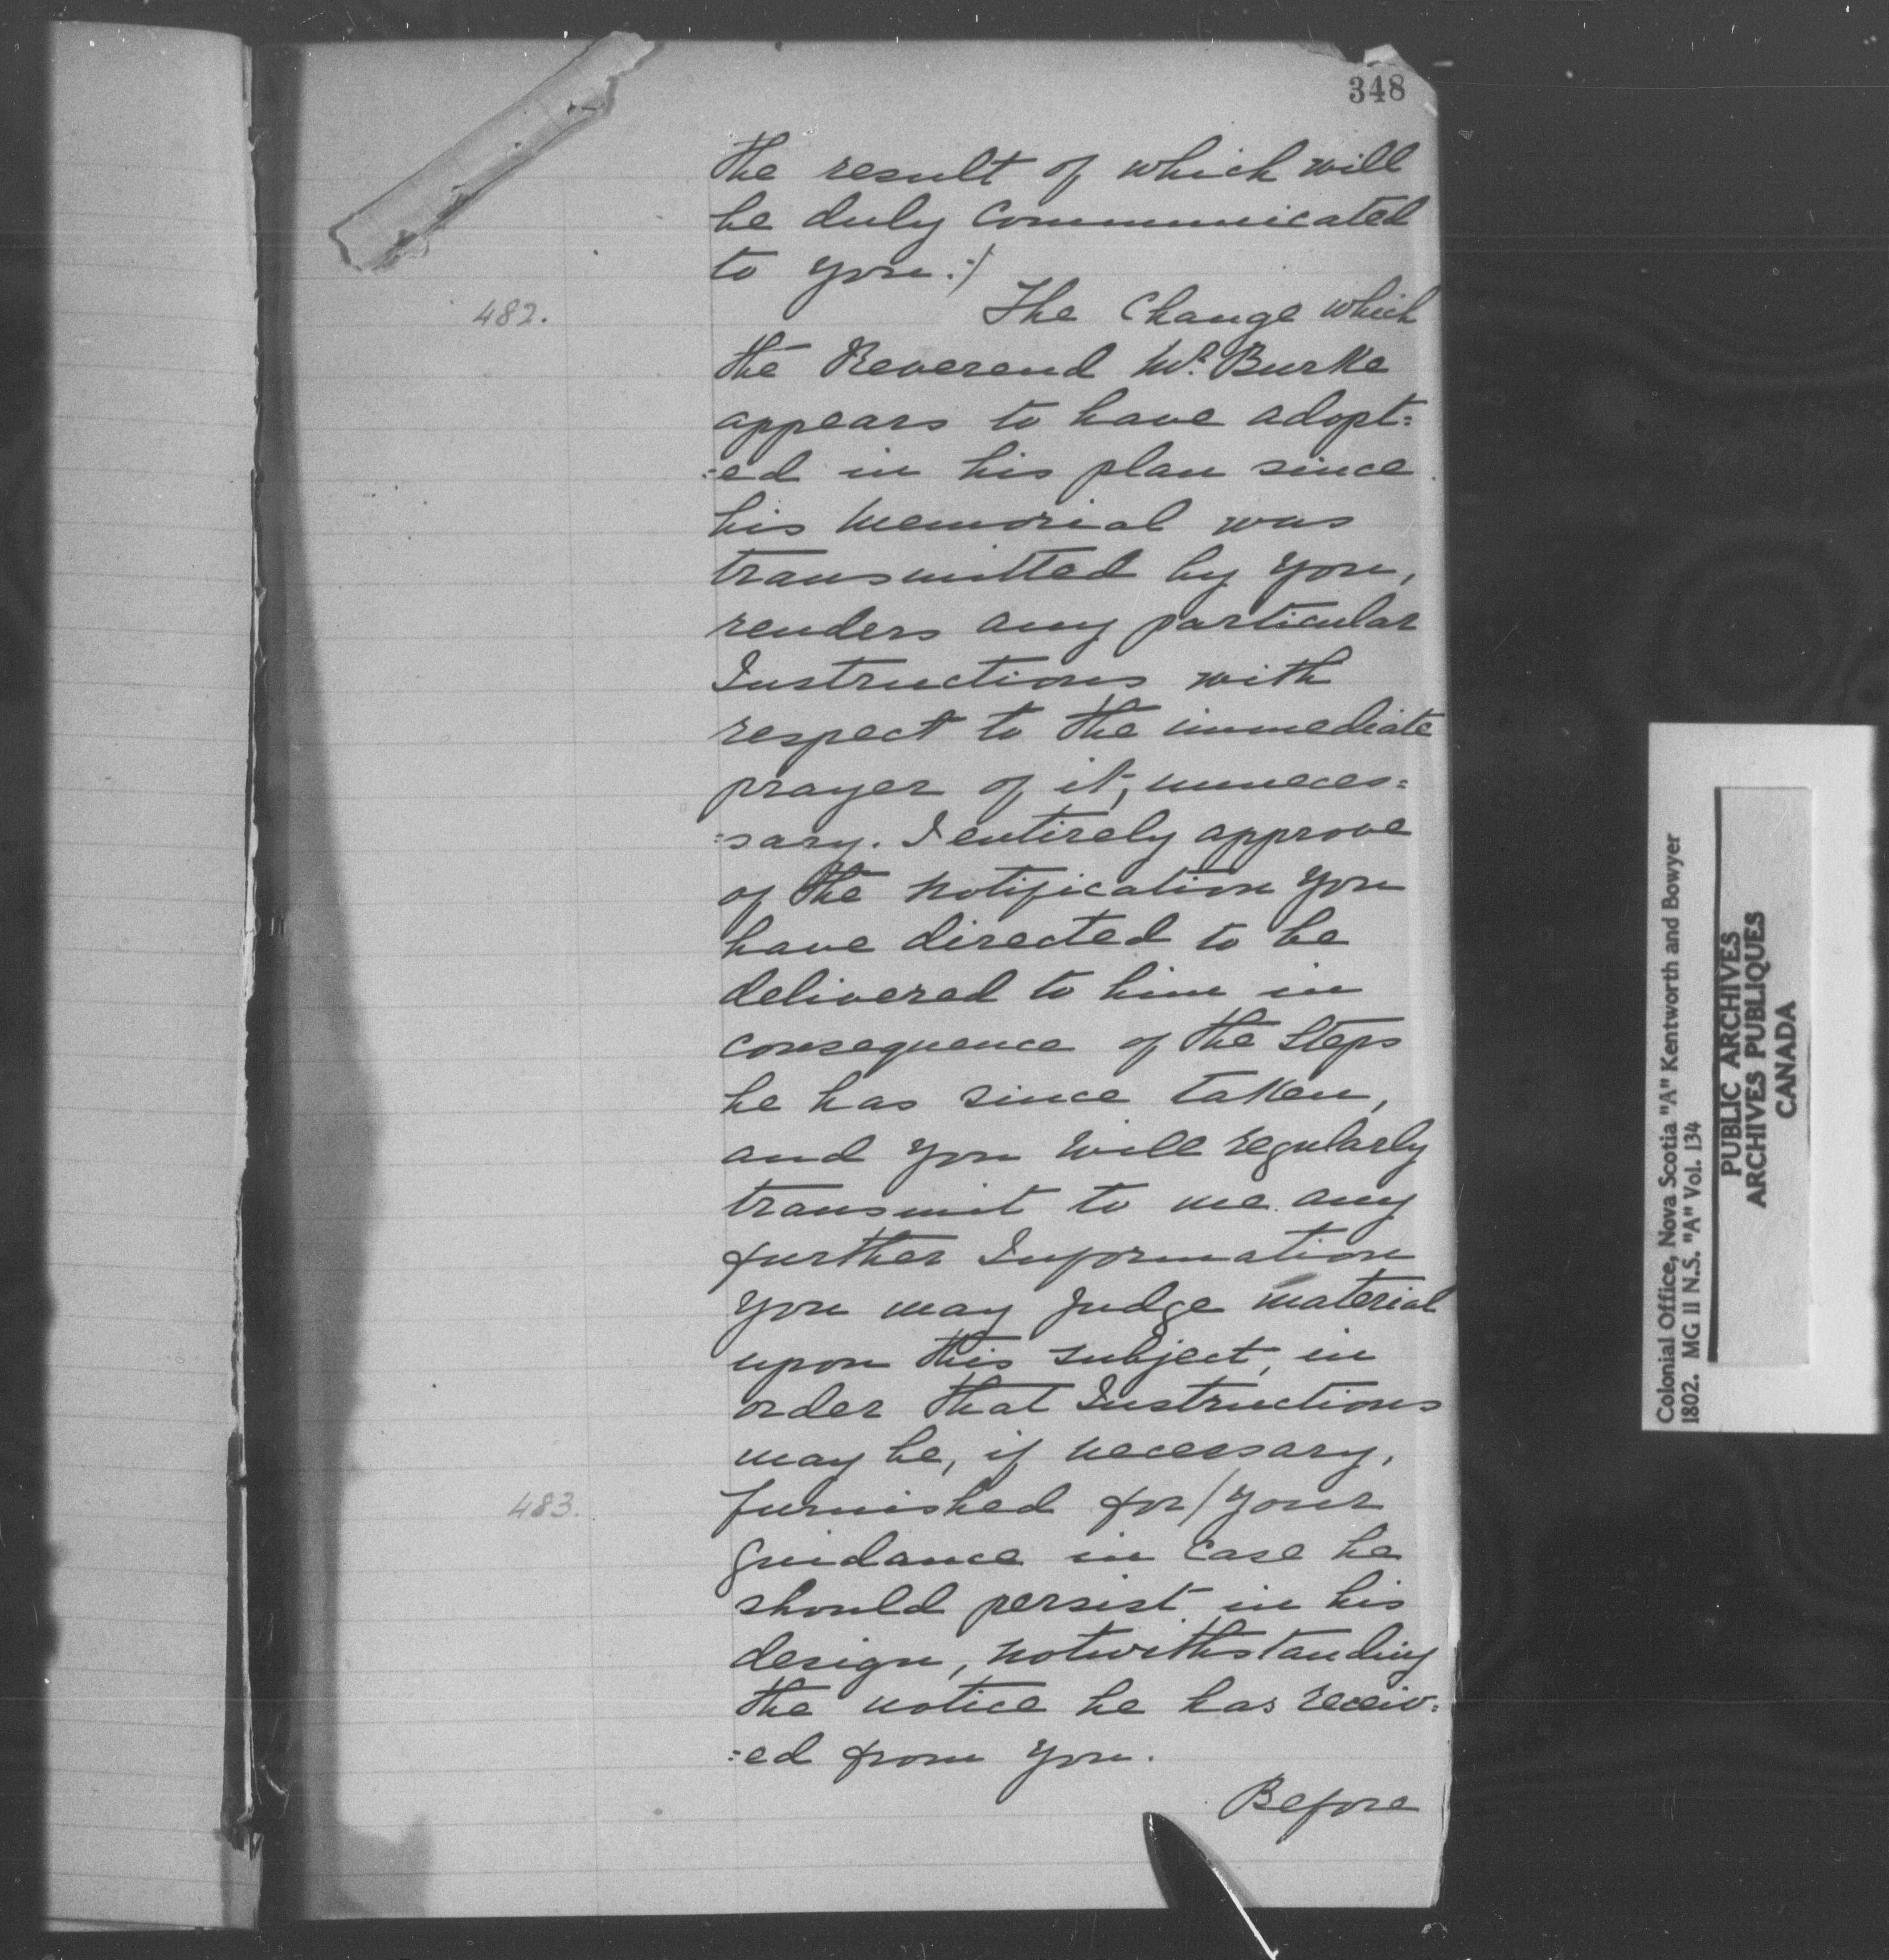 348
the result of which will
be duly Communicated
to you:/
482.
The Change which
the Reverend Mr. Burke
appears to have adopt=
=ed in his plan since
his Memorial was
transmitted by you,
renders any particular
Instructions with
respect to the immediate
prayer of it, unneces=
=sary. I entirely approve
of the Notification you
have directed to be
delivered to him in
consequence of the Steps
he has since taken,
and you will regularly
transmit to me any
further Information
you may judge material
upon this subject, in
order that Instructions
may be, if necessary,
483.
furnished for/your
guidance in case he
should persist in his
design, notwithstanding
the notice he has receiv=
=ed from you.
Before
Colonial Office, Nova Scotia "A" Kentworth and Bowyer
1802. MG II N.S. "A" Vol. 134
PUBLIC ARCHIVES
ARCHIVES PUBLIQUES
CANADA